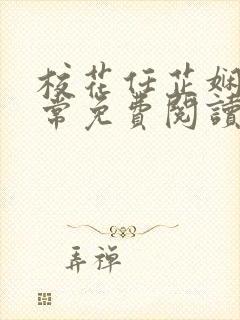 校花任芷娴
常免費閱讀
弄禅